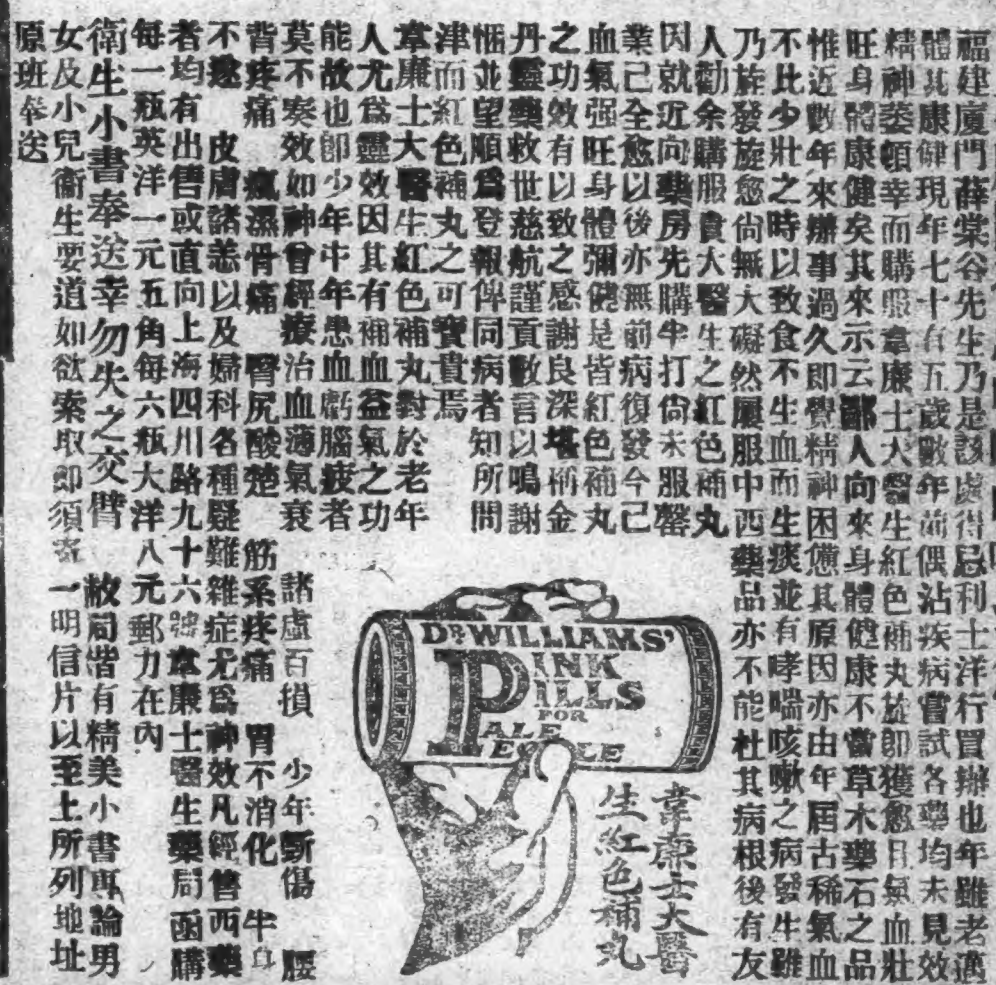 福建廈門薛棠谷先生乃是該處得忌利士洋行買辦也年雖老邁
體其康健現年七十有五歲數年前偶沾疾病嘗試各藥均未見效
精神萎頓幸而購服韋廉士大醫生紅色補丸旋即獲愈且氣血壯
旺身體康健矣其來示云鄙人向來身體健康不嘗草木藥石之品
惟近數年來辦事過久即覺精神困憊其原因亦由年屆古稀氣血
不比少壯之時以致食不生血而生痰並有哮喘咳嗽之病發生雖
乃旋發旋愈尙無大礙然屢服中西藥品亦不能杜其病根後有友
人勸余購服貴大醫生之紅色補丸
因就近向藥房先購半打尙未服罄
業已全愈以後亦無前病復發今己
血氣强旺身體彌健是皆紅色補丸
之功效有以致之感謝良深堪稱金
丹靈藥救世慈航謹貢數言以鳴謝
悃並望順爲登報俾同病者知所問
津而紅色補丸之可寶貴焉
韋廉士大醫生紅色補丸對於老年
人尤爲靈效因其有補血益氣之功
能故也卽少年中年患血虧腦疲者
莫不奏效如神曾經療治血薄氣衰 諸虛百損 少年斲傷 腰
背疼痛 瘋濕骨痛 臀尻酸楚 筋系疼痛 胃不消化 半身
不遂 皮膚諸恙以及婦科各種疑難雜症尤爲神效凡經售西藥
者均有出售或直向上海四川路九十六號韋廉士醫生藥局函購
每一瓶英洋一元五角每六瓶大洋八元郵力在內
衛生小書奉送幸勿失之交臂 敝局皆有精美小書專論男
女及小兒衞生要道如欲索取卽須寄一明信片以至上所列地址
原班奉送
DR WILLIAMS'
PINK
PILLS
FOR
PALE
PEOPLE
韋廉士大醫
生紅色補丸